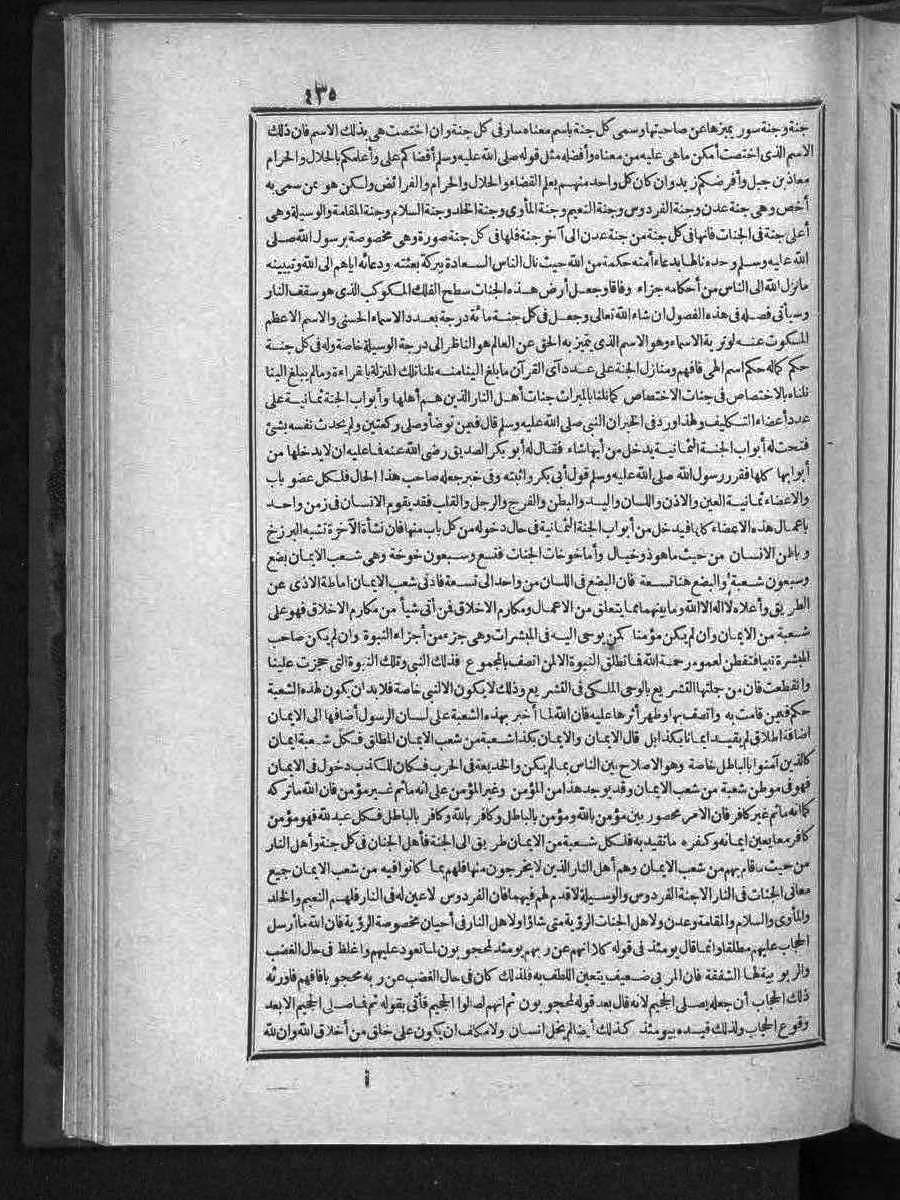 ٤٣٥
جنة وجنة سور يميزها عن صاحبتها وسمى كل جنة باسم معناه سار فى كل جنة وان اختصت هى بذلك الاسم فان ذلك
الاسم الذى اختصت أمكن ما هى عليه من معناه وأفضله مثل قوله صلى الله عليه وسلم أقضاكم على وأعلمكم بالحلال والحرام
معاذ بن جبل وأفرضكم زيد وان كان كل واحد منهم يعلم القضاء والحلال والحرام والفرائض ولكن هو بمن سمى به
أخص وهى جنة عدن وجنة الفردوس وجنة النعيم وجنة المأوى وجنة الخلد وجنة السلام وجنة المقامة والوسيلة وهى
أعلى جنة فى الجنات فانها فى كل جنة من جنة عدن الى آخر جنة فلها فى كل جنة صورة وهى مخصوصة برسول الله صلى
الله عليه وسلم وحده نالها بدعاء أمته حكمة من الله حيث نال الناس السعادة ببركة بعثته ودعائه اياهم الى الله وتبيينه
ما نزل الله الى الناس من أحكامه جزاء وفاقا وجعل أرض هذه الجنات سطح الفلك المكوكب الذى هو سقف النار
وسيأتى فصله فى هذه الفصول ان شاء الله تعالى وجعل فى كل جنة مائة درجة بعدد الاسماء الحسنى والاسم الاعظم
المسكوت عنه لوترية الاسماء وهو الاسم الذى يتميز به الحق عن العالم هو الناظر الى درجة الوسيلة خاصة وله فى كل جنة
حكم كماله حكم اسم الهى فافهم ومنازل الجنة على عدد آى القرآن ما بلغ الينا منه نلنا تلك المنزلة بالقراءة وما لم يبلغ الينا
نلناه بالاختصاص فى جنات الاختصاص كما نلنا بالميراث جنات أهل النار الذين هم أهلها وأبواب الجنة ثمانية على
عدد أعضاء التكليف ولهذا ورد فى الخبر ان النبى صلى الله عليه وسلم قال فيمن توضأ وصلى ركعتين ولم يحدث نفسه بشئ
فتحت له أبواب الجنة الثمانية يدخل من أيها شاء فقال له أبو بكر الصديق رضى الله عنه فما عليه ان لا يدخلها من
أبوابها كلها فقرر رسول الله صلى الله عليه وسلم قول أبى بكر وأثبته وفى خبر جعله صاحب هذا الحال فلكل عضو باب
والاعضاء ثمانية العين والاذن واللسان واليد والبطن والفرج والرجل والقلب فقد يقوم الانسان فى زمن واحد
باعمال هذه الاعضاء كلها فيدخل من أبواب الجنة الثمانية فى حال دخوله من كل باب منها فان نشأة الآخرة تشبه البرزخ
وباطن الانسان من حيث ما هو ذو خيال وأما خوخات الجنات فتسع وسبعون خوخة وهى شعب الايمان بضع
وسبعون شعبة والبضع هنا تسعة فان البضع فى اللسان من واحد الى تسعة فادنى شعب الايمان اماطة الاذى عن
الطريق وأعلاه لا اله الا الله وما بينهما مما تتعلق من الاعمال ومكارم الاخلاق فمن أتى شيأ من مكارم الاخلاق فهو على
شعبة من الايمان وان لم يكن مؤمنا كمن يوحى اليه فى المبشرات وهى جزء من أجزاء النبوة وان لم يكن صاحب
المبشرة نبيا فتفطن لعموم رحمة الله فما تطلق النبوة الا لمن اتصف بالمجموع فذلك النبى وتلك النبوة التى حجزت علينا
وانقطعت فان من جلتها التشريع بالوحى الملكى فى التشريع وذلك لا يكون الا لنبى خاصة فلا بد ان يكون لهذه الشعبة
حكم فيمن قامت به واتصف بها وظهر أثرها عليه فان الله لما أخبر بهذه الشعبة على لسان الرسول أضافها الى الايمان
اضافة اطلاق لم يقيد ايمانا بكذا بل قال الايمان والايمان بكذا شعبة من شعب الايمان المطلق فكل شعبة ايمان
كالذين آمنوا بالباطل خاصة وهو الاصلاح بين الناس بما لم يكن والخديعة فى الحرب فكان للكذب دخول فى الايمان
فهو فى موطن شعبة من شعب الايمان وقد يوجد هذا من المؤمن وغير المؤمن على انه ما ثم غير مؤمن فان الله ما تركه
كما انه ما ثم غير كافر فان الامر محصور بين مؤمن بالله ومؤمن بالباطل وكافر بالله وكافر بالباطل فكل عبد لله فهو مؤمن
كافر معا يعين ايمانه وكفره ما تقيد به فلكل شعبة من الايمان طريق الى الجنة فأهل الجنان فى كل جنة وأهل النار
من حيث ما قام بهم من شعب الايمان وهم أهل النار الذين لا يخرجون منها فلهم بما كانوا فيه من شعب الايمان جميع
معانى الجنات فى النار الا جنة الفردوس والوسيلة لا قدم لهم فيهما فان الفردوس لا عين له فى النار فلهم النعيم والخلد
والمأوى والسلام والمقامة وعدن ولاهل الجنات الرؤية متى شاؤا ولاهل النار فى أحيان مخصوصة الرؤية فان الله ما أرسل
الحجاب عليهم مطلقا وانما قال يومئذ فى قوله كلا انهم عن ربهم يومئذ لمحجوبون لما تعود عليهم واغلظ فى حال الغضب
والربوبية لها الشفقة فان المربى ضعيف يتعين اللطف به فلذلك كان فى حال الغضب عن ربه محجوبا فافهم فاورثه
ذلك الحجاب أن جعله يصلى الجحيم لانه قال بعد قوله لمحجوبون ثم انهم لصالوا الجحيم فأتى بقوله ثم فما صلى الجحيم الا بعد
وقوع الحجاب ولذلك قيده بيومئذ كذلك أيضا لم يخل انسان ولا مكلف ان يكون على خلق من أخلاق الله وان لله